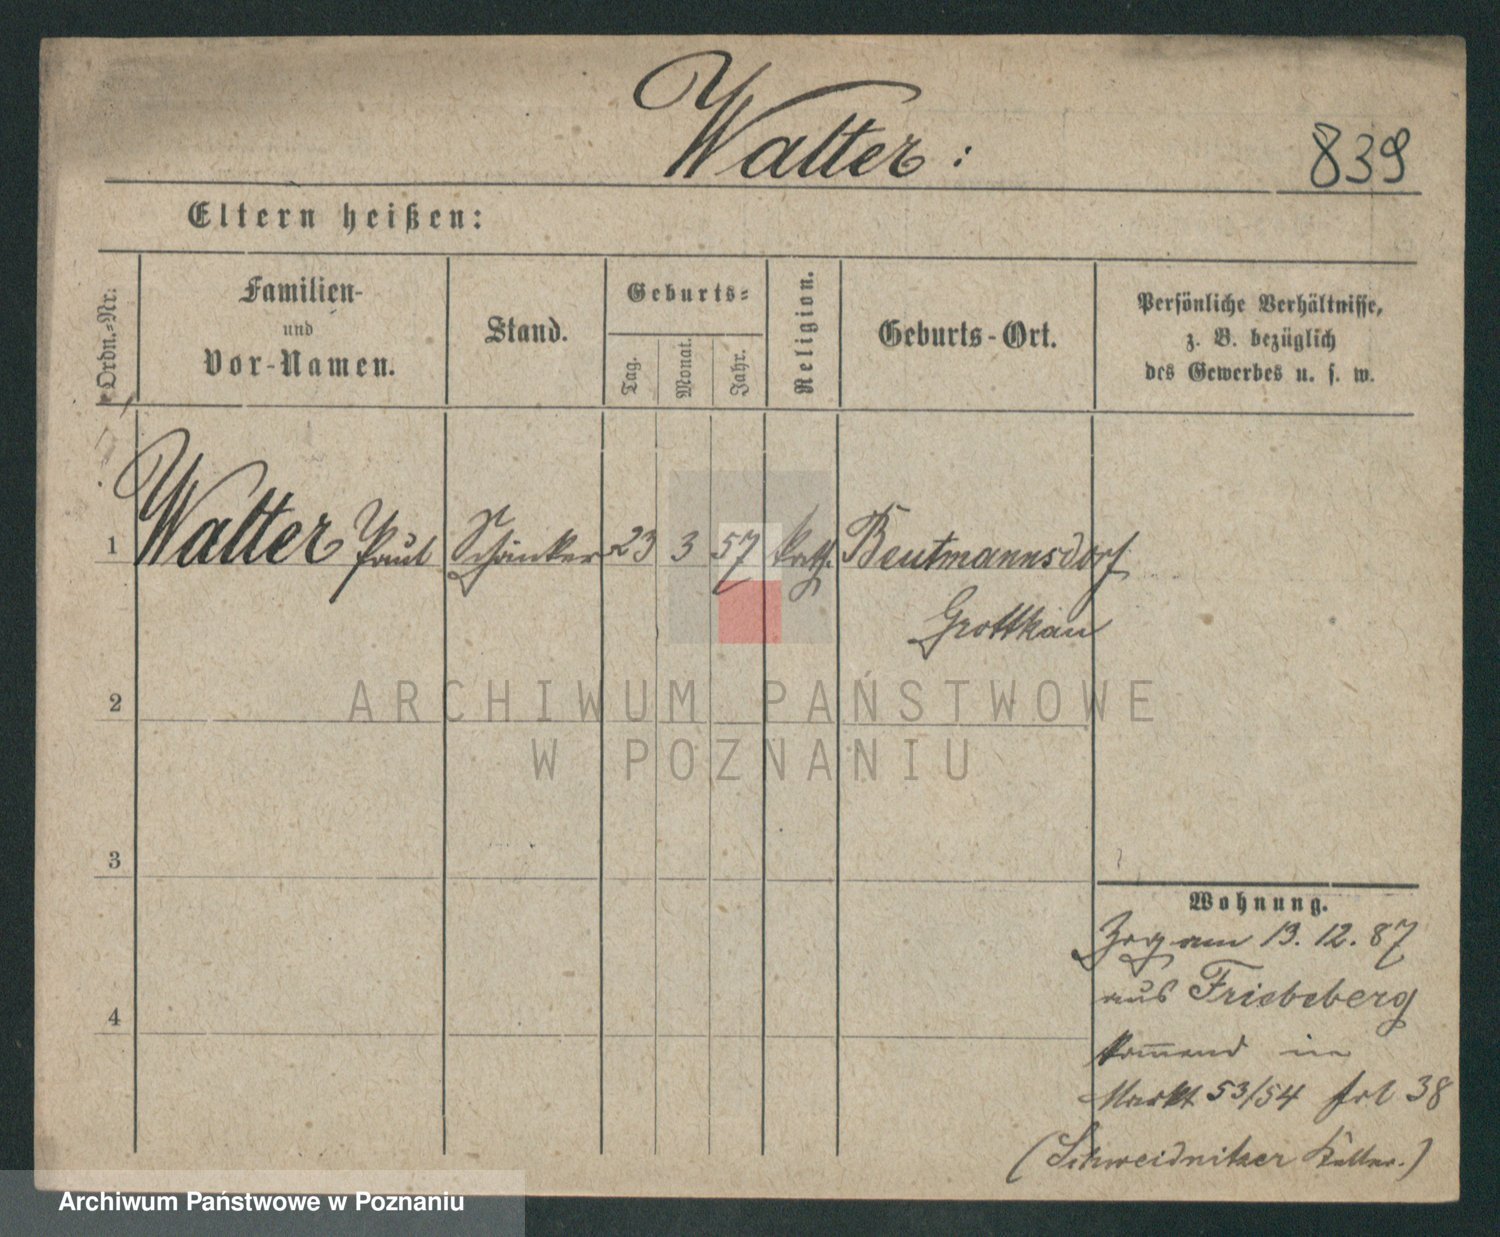 Walter:
839
Eltern heißen:
Ordn.-Nr.
Familien-
und
Vor-Namen.
Stand.
Geburts-
Tag.
Monat.
Jahr.
Religion.
Geburts-Ort.
Persönliche Verhältnisse,
z. B. bezüglich
des Gewerbes u. s. w.
1 Walter Paul Schänker 23 3 57 kath. Beutmannsdorf
Grottkau
2
ARCHIWUM PAŃSTWOWE
W POZNANIU
3
Wohnung.
Zog am 13. 12. 87
aus Friebeberg
4
kommend in
Markt 53/54 38
(Schweidnitzer Keller.)
Archiwum Państwowe w Poznaniu